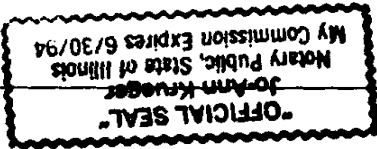 "OFFICIAL SEAL"
Jo-Ann Krueger
Notary Public, State of Illinois
My Commission Expires 6/30/94